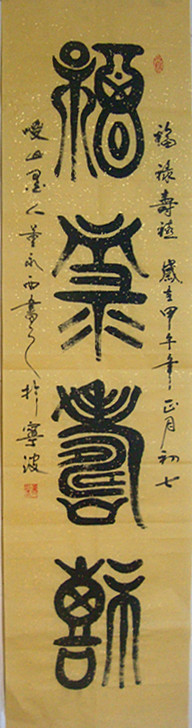 福祿壽禧 歲在甲午年正月初七
福
祿
壽
禧
山墨人董永書於寧波